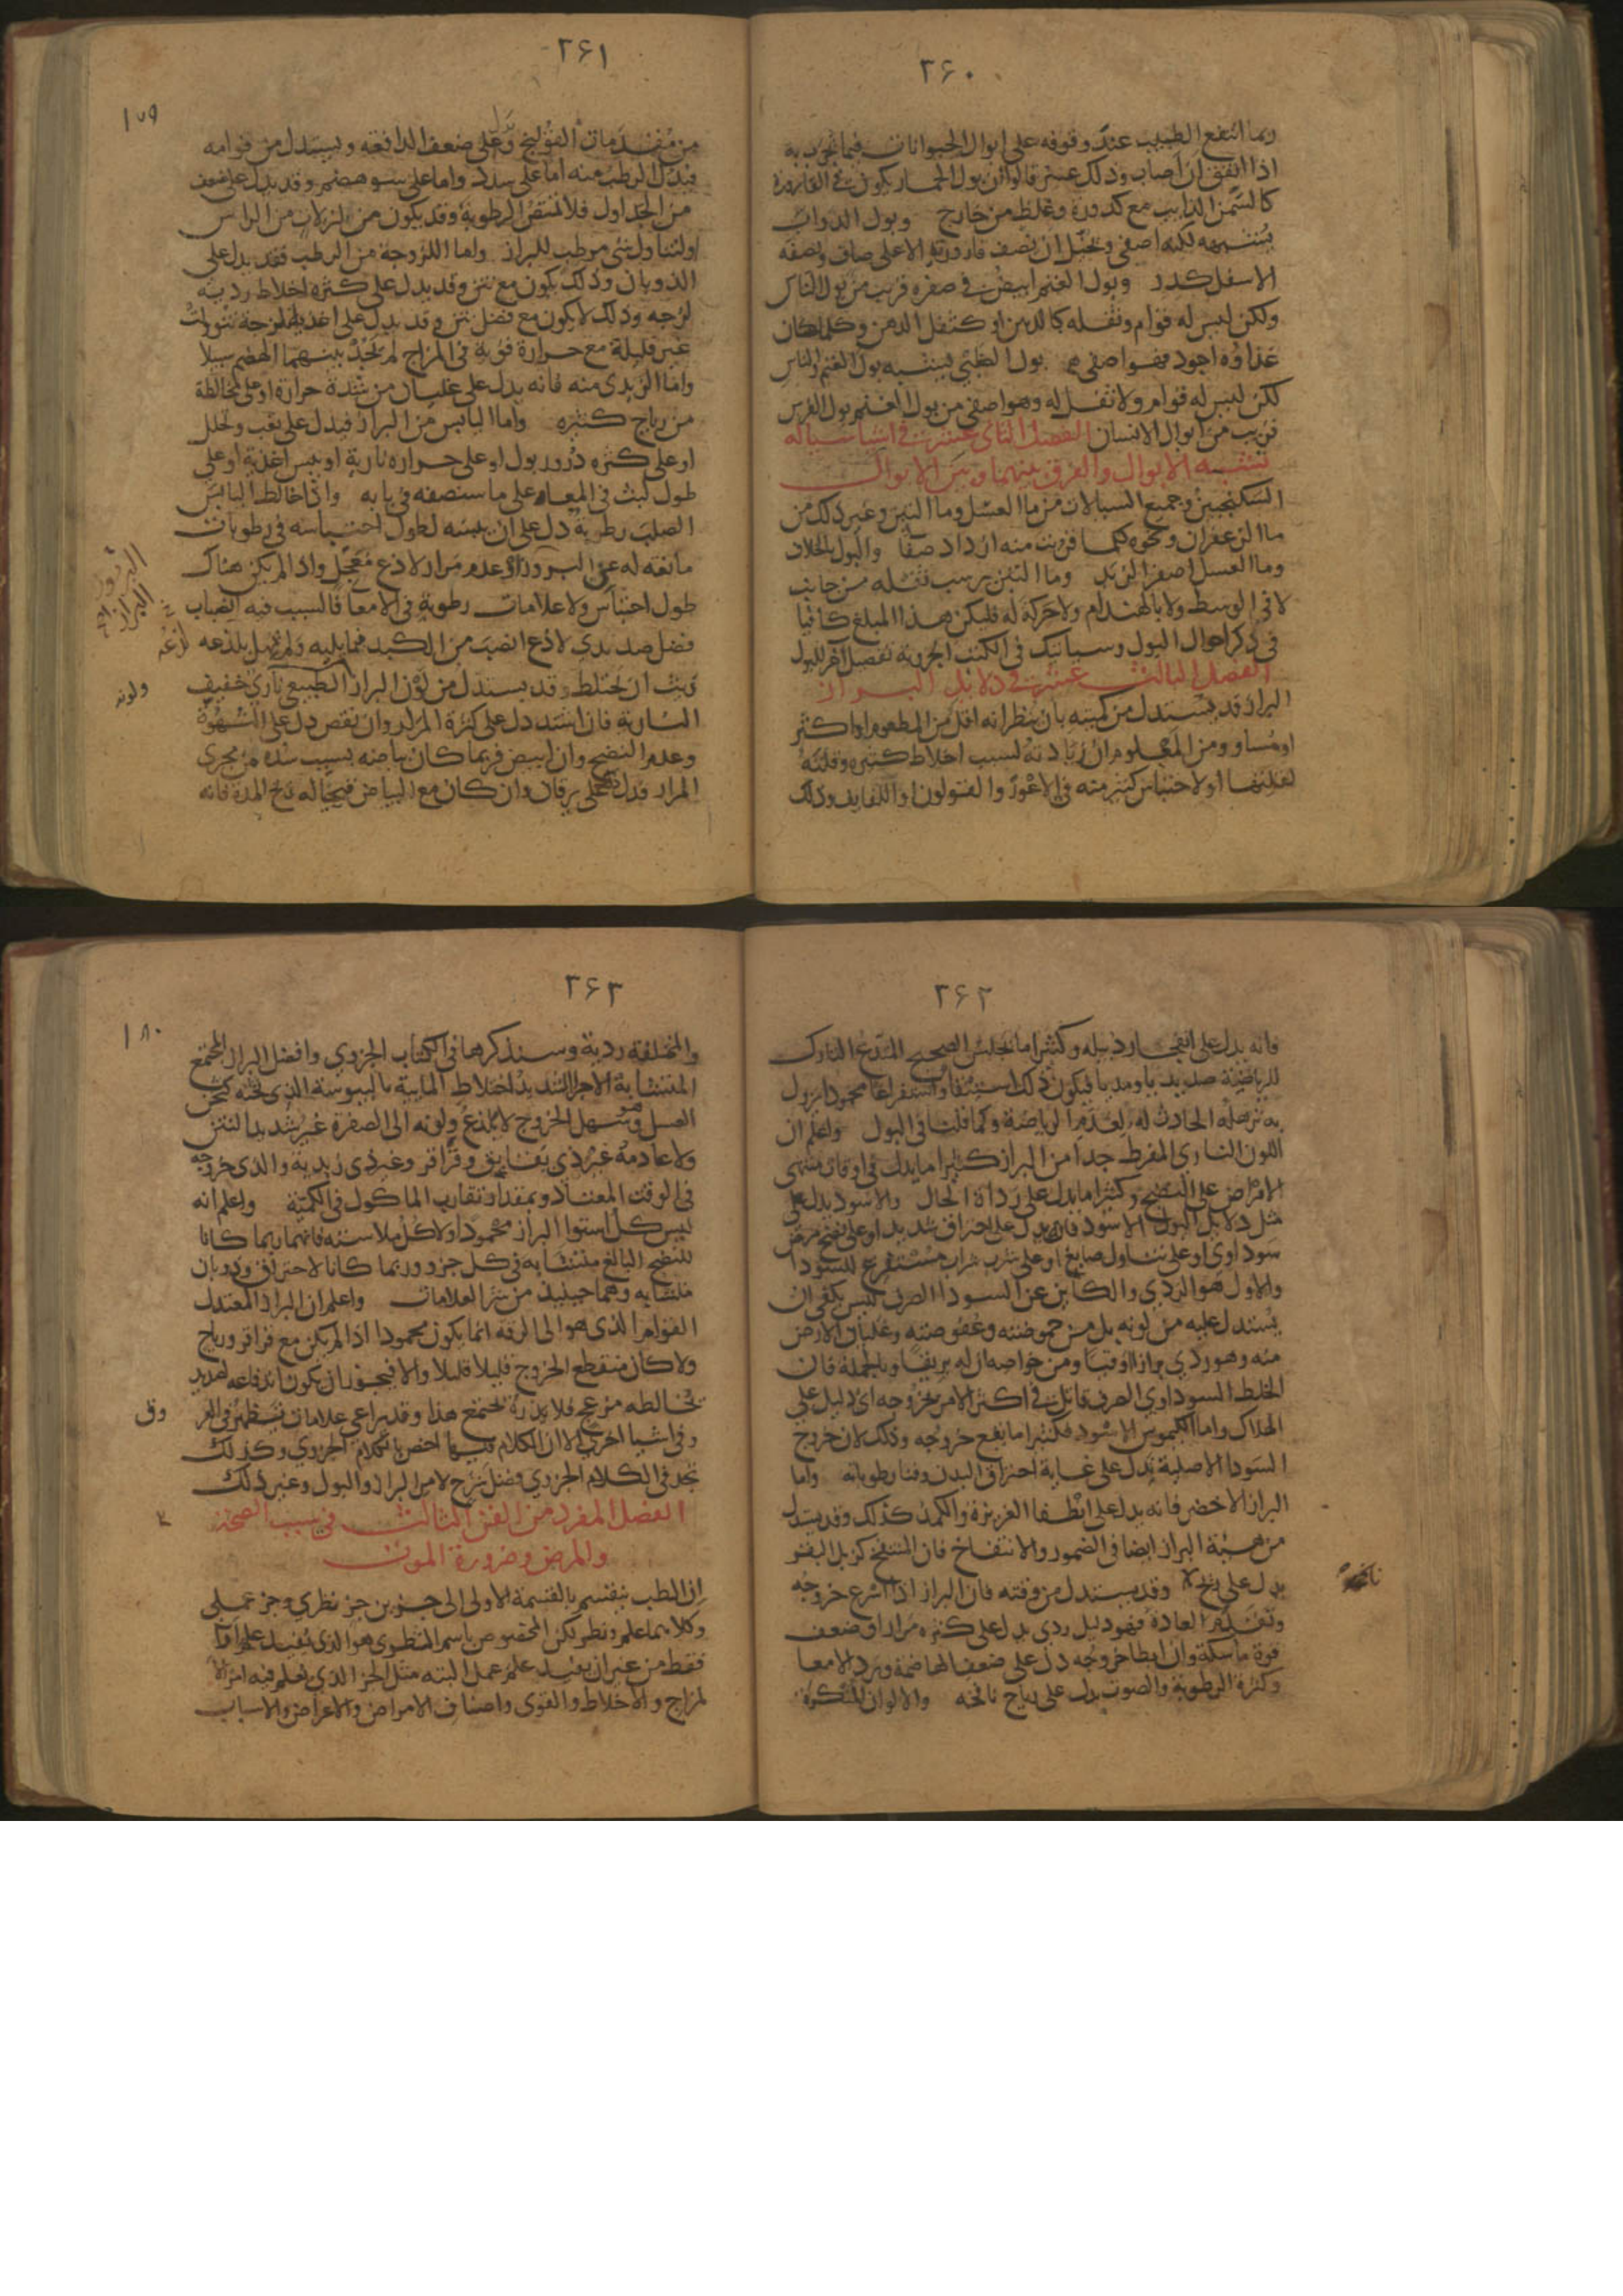 ٢٦٠
ربما انتفع الطبيب عند وقوفه على ابوال الحيوانات فيما يجرب به
اذا اتفق ان اصاب وذلك عسر قالوا ان بول الحمار يكون في القارورة
كالسمن الذايب مع كدورة وغلظ من خارج وبول الدواب
يشبهه لكنه اصفى ويخيل ان نصف قارورته الاعلى صاف ونصفه
الاسفل كدر وبول الغنم ابيض في صفرة قريب من بول الناس
ولكن ليس له قوام وثفله كالدهن او كثفل الدهن وكلما كان
غذاؤه اجود فهو اصفى بول الظبي يشبه بول الغنم والناس
لكن ليس له قوام ولا ثفل له وهو اصفى من بول الغنم بول الفرس
قريب من ابوال الانسان الفصل الثاني عشر في اشيا سيالة
تشبه الابوال والفرق بينهما وبين الابوال
السكنجبين وجميع السيالات من ما العسل وما التين وغير ذلك من
ما الزعفران ونحوه كلما قربت منه ازداد صفا والبول بالخلاف
وما العسل اصفر الزبد وما التين يرسب ثفله من جانب
لا في الوسط ولا بالهندام ولا حركة له فليكن هذا المبلغ كافيا
في ذكر احوال البول وسياتيك في الكتب الجزويه تفصيل اخر للبول
الفصل الثالث عشر في دلايل البراز
البراز قد يستدل من كميته بان ينظر انه اقل من المطعوم او اكثر
او مساو ومن المعلوم ان زيادته لسبب اخلاط كثيره وقلته
لقلتها او لاحتباس كثير منه في الاعور والقولون او اللفايف وذلك
٢٦١
١٧٩
من مقدمات القولنج وعلى ضعف الدافعه ويستدل من قوامه
فيدل الرطب منه اما على سدد واما على سو هضم وقد يدل على ضعف
من الجداول فلا تمتص الرطوبة وقد يكون من نزلات من الراس
او لتناول شي مرطب للبراز واما اللزوجة من الرطب فقد يدل على
الذوبان وذلك يكون مع نتن وقد يدل على كثره اخلاط رديه
لزجه وذلك لا يكون مع فضل نتن وقد يدل على اغذية لزجة تنوولت
غير قليلة مع حرارة قوية في المزاج لم تجد بينهما الهضم سبيلا
واما الزبدي منه فانه يدل على غليان من شدة حرارة او على مخالطة
من رياح كثيره واما اليابس من البراز فيدل على تعب وتحلل
او على كثره درور بول او على حراره نارية او يبس اغذية او على
طول لبث في المعا على ما سنصفه في بابه واذا خالط اليابس
الصلب رطوبة دل على ان يبسه لطول احتباسه في رطوبات
مانعه له عن البروز او عدم مرار لاذع معجل واذا لم يكن هناك
طول احتباس ولا علامات رطوبة في الامعا فالسبب فيه انصباب
فضل صديدي لاذع انصب من الكبد فيما يليه ولم يمهل بلذعه
ريث ان يختلط وقد يستدل من لون البراز الطبيعي ناري خفيف
النارية فان اشتد دل على كثرة المرار وان نقص دل على الشهوة
وعدم النضج وان ابيض فربما كان بياضه بسبب سده من مجرى
المرار فدل على يرقان وان كان مع البياض قيحيا له ريح المدة فانه
لذعه
ولونه
٢٦٢
فانه يدل على انفجار دبيله وكثيرا ما يجلس الصحيح المتدع التارك
للرياضة صديديا ومديا فيكون ذلك استنقا واستفراغا محمودا يزول
به ترهله الحادث له لعدم الرياضة وكما قلنا في البول واعلم ان
اللون الناري المفرط جدا من البراز كثيرا ما يدل في اوقات منتهى
الامراض على النضج وكثيرا ما يدل على رداة الحال والاسود يدل على
مثل دلايل البول الاسود فانه يدل على احتراق شديد او على نضج مرض
سوداوي او على تناول صابغ او على شرب شراب مستفرغ للسودا
والاول هو الردي والكاين عن السودا الصرف ليس يكفي ان
يستدل عليه من لونه بل من حموضته وعفوصته وغليان الارض
منه وهو ردي برازا او قيا ومن خواصه ان له بريقا وبالجملة فان
الخلط السوداوي الصرف قاتل في اكثر الامر بخروجه اي دليل على
الهلاك واما الكيموس الاسود فكثيرا ما يقع خروجه وذلك لان خروج
السودا الاصلية تدل على غاية احتراق البدن وفنا رطوباته واما
البراز الاخضر فانه يدل على انطفا الغريزة والكمد كذلك وقد يستدل
من هيئة البراز ايضا في الضمور والانتفاخ فان المنتفخ كزبل البقر
يدل على ريح وقد يستدل من وقته فان البراز اذا اسرع خروجه
وتقدم العادة فهو دليل ردي يدل على كثره مرار او ضعف
قوة ماسكة وان ابطا خروجه دل على ضعف الهاضمة وبرد الامعا
وكثرة الرطوبة والصوت يدل على رياح نافخه والالوان المنكرة
٢٦٣
١٨٠
والمختلفة ردية وسنذكرها في الكتاب الجزوي وافضل البراز المجتمع
المتشابه الاجزا الشديد اختلاط المايية باليبوسة الذي ثخنه كثخن
العسل وهو سهل الخروج لا يلذع ولونه الى الصفرة غير شديد النتن
ولا عادمه غير ذي بقابق وقراقر وغير ذي زبدية والذي خروجه
في الوقت المعتاد وبمقدار تقارب الماكول في الكمية واعلم انه
ليس كل استوا البراز محمودا ولا كل ملاسته فانهما ربما كانا
للنضج البالغ متشابه في كل جزو وربما كانا لاحتراق وذوبان
متشابه وهما حينيذ من شر العلامات واعلم ان البراز المعتدل
القوام الذي هو الى الرقة انما يكون محمودا اذا لم يكن مع قراقر ورياح
ولا كان منقطع الخروج قليلا قليلا والا فيجوز ان يكون اندفاعه لصديد
يخالطه مزعج فلا يذره يجتمع هذا وقد يراعى علامات تظهر في العر
وفي اشيا اخرى الا ان الكلام فيها اخص بالكلام الجزوي وكذلك
تجد في الكلام الجزوي فضل شرح لامر البراز والبول وغير ذلك
الفصل المفرد من الفن الثالث في سبب الصحة
والمرض وضرورة الموت
ان الطب ينقسم بالقسمة الاولى الى جزوين جز نظري وجز عملي
وكلاهما علم ونظر لكن المخصوص باسم النظري هو الذي يفيد علم اراا
فقط من غير ان يفيد علم عمل البته مثل الجز الذي نعلم فيه امر الا
لمزاج والاخلاط والقوى واصناف الامراض والاعراض والاسباب
وق